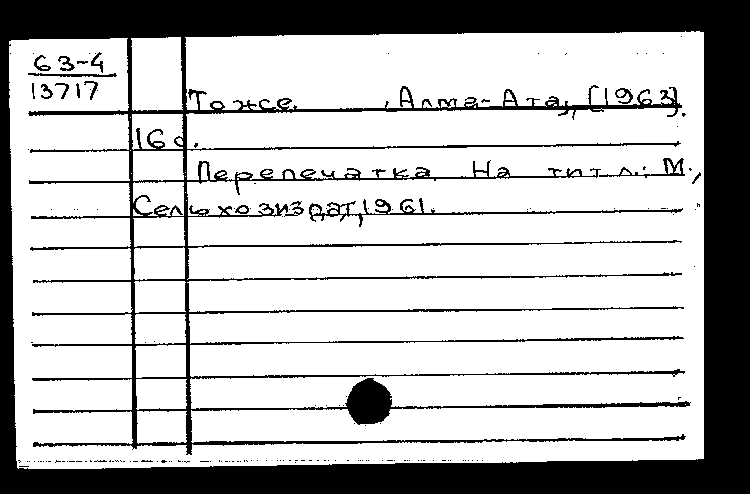 63-4
13717
То же. , Алма-Ата, [1963].
16 с.
Перепечатка На тит. л.: М.,
Сельхозиздат, 1961.